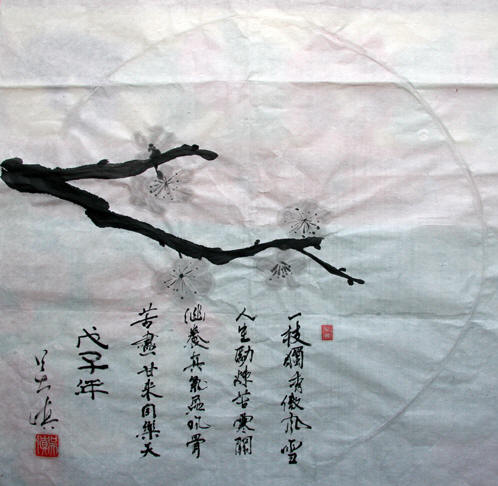 一枝獨秀傲風雪
人生勵煉苦寒關
涵養真氣骨
苦盡甘來同樂天
戊子年